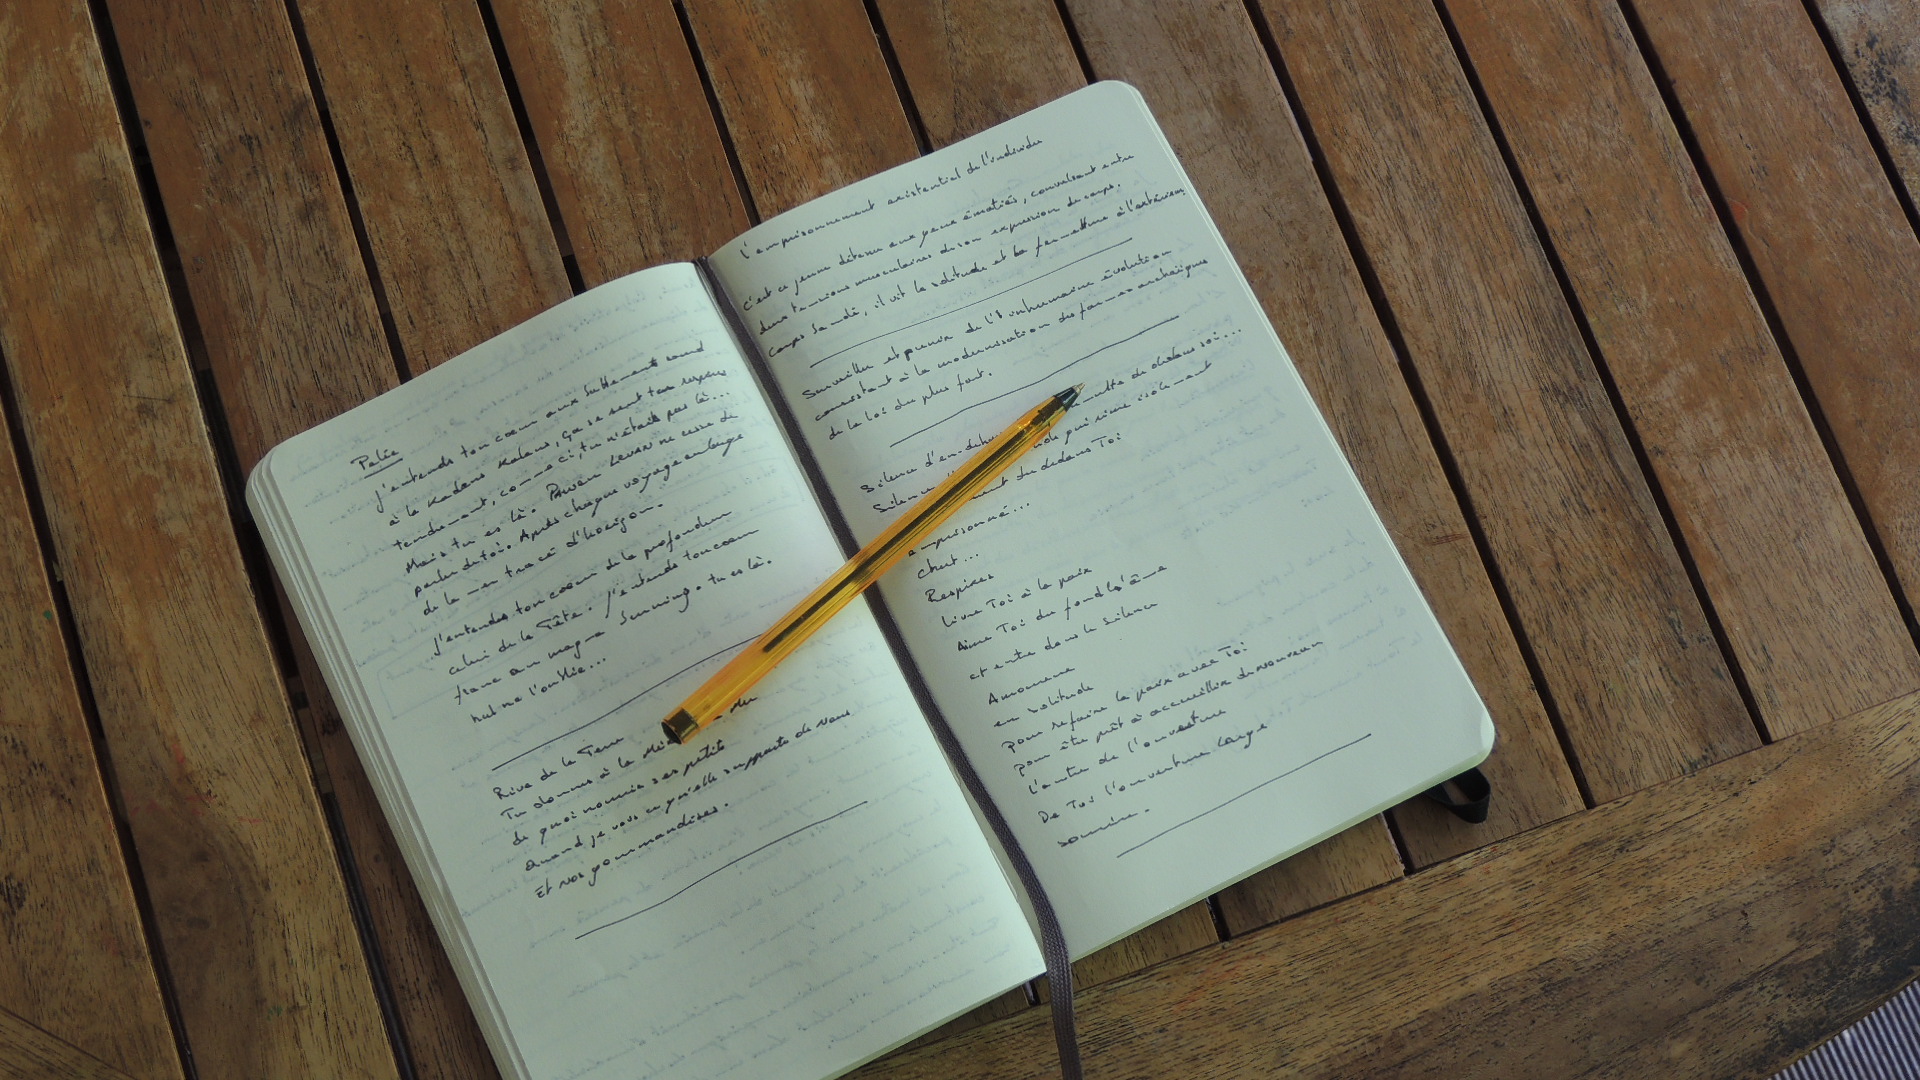 Palée
J'entends ton cœur aux battements sourd
à la Kadans Kadans, ça se sent ton
tendrement, comme ci, tu n'étais pas là...
Mais tu es là. Pawòl LEVAN ne cesse de
parler de toi. Après chaque voyage en large
de la mer tracé d'horizon.
J'entends ton cœur de la profondeur
celui de la Tête. J'entends ton cœur
franc au magma Sunning. tu es là.
nul ne l'oublie...
Rêve de la Terre
Tu donnes à la du
de quoi nourrir ses petits
Quand je vois ce qu'elle supporte de nous
Et nos gourmandises.
L'emprisonnement existentiel de l'individu
C'est ce jeune détenu aux yeux émotiés, convulsant entre
deux tensions musculaires de son expression du corps.
Corps Sa-dé, il vit la solitude et la fermeture à l'extérieur
Surveiller et punir de l'Inhumaine évolution
consistant à la modernisation des formes archaïques
de la loi du plus fort.
Silence d'en-dehors de dedans soi...
Silence qui rime isolement
du dedans Toi
emprisonné...
chut...
Respires
Livre Toi à la paix
Aime Toi du fond l'âme
et entre dans le silence
Amoureux
en solitude
pour refaire la paix avec Toi
pour être prêt à accueillir du nouveau
L'antre de l'ouverture
De Toi l'ouverture large